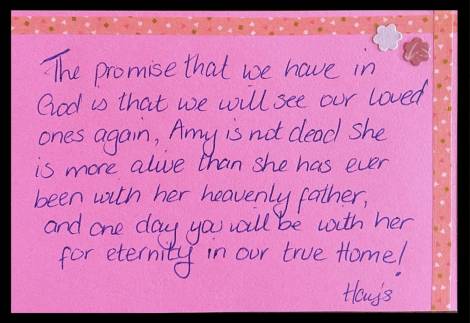 The promise that we have in
God is that we will see our loved
ones again, Amy is not dead she
is more alive than she has ever
been with her heavenly father,
and one day you will be with her
for eternity in our true Home!